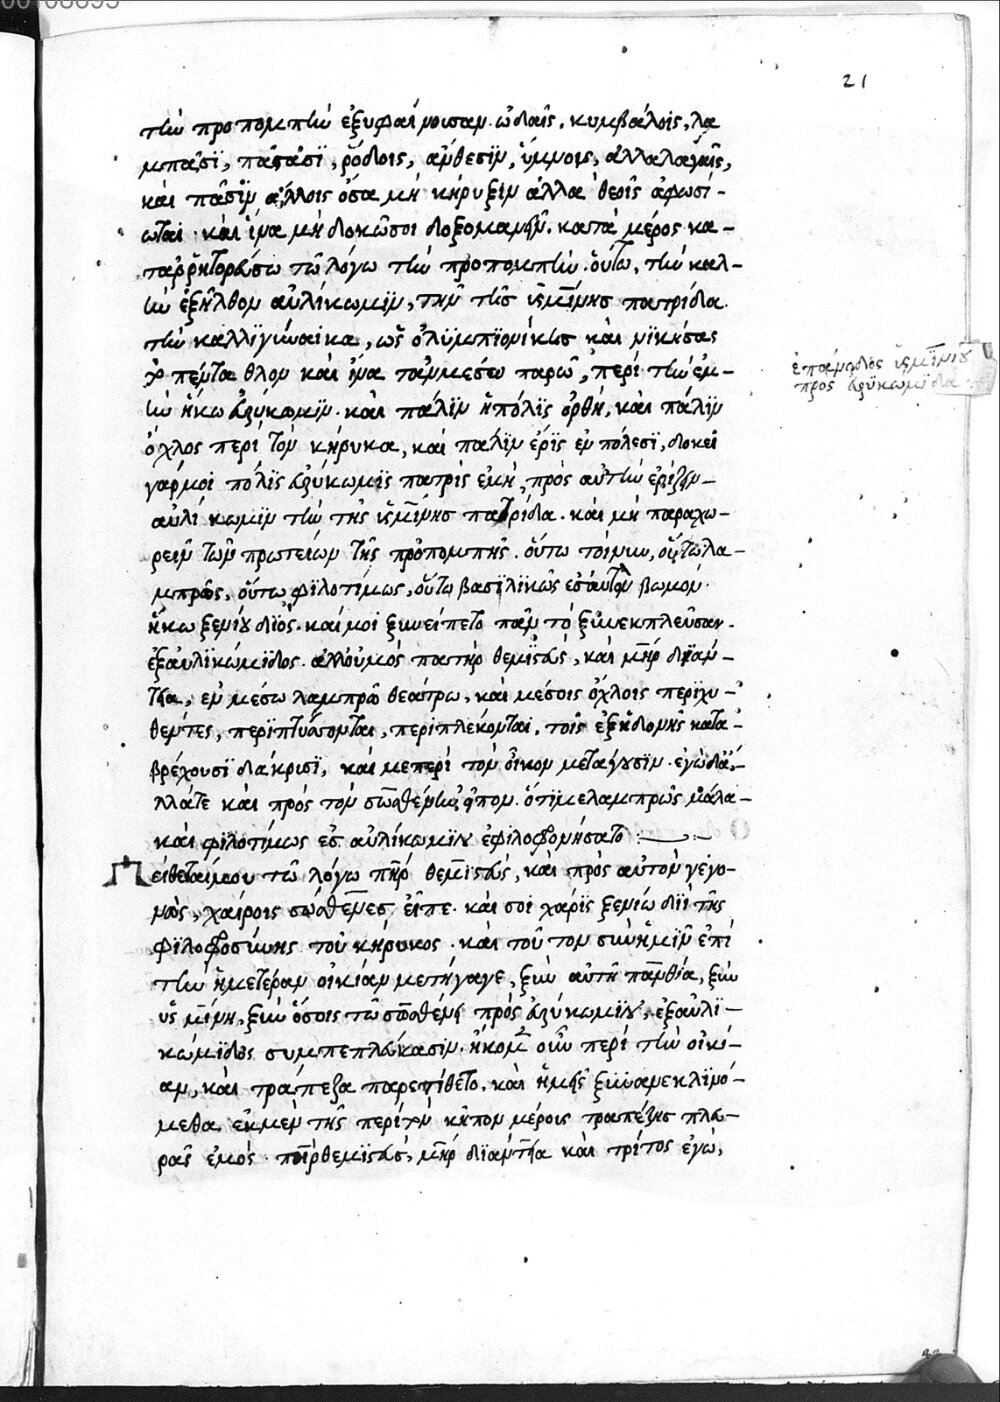 21
τὴν προπομπὴν ἐξυφαίνουσαν. ὠδαῖς, κυμβάλοις, λα
μπάσϊ, παστάσϊ, ῥόδοις, ἄνθεσϊν, ὕμνοις, ἀλλαλαγαῖς,
καὶ πᾶσϊν ἄλλοις ὅσα μὴ κήρυξϊν ἀλλὰ θεοῖς ἀφωσί-
ωται. καὶ ἵνα μὴ δοκῶσοι δοξομανεῖν. κατὰ μέρος κα-
ταῤῥητορεύσω τῶ λόγω τὴν προπομπὴν. οὕτω, τὴν καλ-
ὴν ἐξῆλθον αὐλίκωμϊν, τὴν τῆς ὑσμίνης πατρίδα.
τὴν καλλϊγύναικα, ὡς ὀλϋμπϊονίκης καὶ νϊκήσας
πένταθλον καὶ ἵνα τἀνμέσω παρῶ, περὶ τὴν ἐμ-
ὴν ἥκω εὐρύκωμϊν. καὶ πάλϊν ἡ πόλϊς ὀρθὴ, καὶ πάλϊν
ὄχλος περὶ τὸν κήρυκα, καὶ πάλϊν ἔρϊς ἐν πόλεσϊ, δοκεῖ
γάρμοι πόλϊς εὐρύκωμϊς πατρὶς ἐμὴ, πρὸς αὐτὴν ἐρίζειν
αὐλίκωμϊν τὴν τῆς ὑσμίνης πατρίδα. καὶ μὴ παραχω-
ρεῖν τῶν πρωτείων τῆς προπομπῆς. οὕτω τοίνυν, οὕτω λα-
μπρῶς, οὕτω φϊλοτίμως, οὕτω βασϊλϊκῶς ἐς αὐτὸν βωμὸν
ἥκω ξενίου διὸς. καί μοι ξυνείπετο πᾶν τὸ ξυνεκπλεῦσαν
ἐξ αὐλϊκώμϊδος. ἀλλ' οὑμὸς πατὴρ θεμϊστεὺς, καὶ μὴρ δϊαν-
τεία, ἐν μέσω λαμπρῶ θεάτρω, καὶ μέσοις ὄχλοις περϊχυ-
θέντες, περϊπτύσσονται, περϊπλέκονται, τοῖς ἐξ ἡδονῆς κατα-
βρέχουσϊ δάκρισϊ, καὶ με περὶ τὸν οἶκον μετάγουσϊν. ἐγὼ δ' ἄλ-
λλά τε καὶ πρὸς τὸν σωσθένην εἶπον. ὅτι με λαμπρῶς μάλα
καὶ φϊλοτίμως ἐς αὐλίκωμϊν ἐφϊλοφρονήσατο
Πείθεταί μου τῶ λόγω πὴρ θεμϊστεὺς, καὶ πρὸς αὐτὸν γεγο-
νὼς, χαίροις σώσθενες εἶπε. καὶ σοὶ χάρϊς ξενίω διῒ τῆς
φϊλοφροσύνης τοῦ κήρυκος. καὶ τοῦτον σὺν ἡμϊν ἐπὶ
τὴν ἡμετέραν οἰκίαν μετήγαγε, ξὺν αὐτῆ πανθία, ξὺν
ὑσμίνη, ξὺν ὅσοις τῶ σωσθένει πρὸς εὐρύκωμϊν, ἐξ αὐλϊ-
κώμϊδος συμπεπλεύκασϊν. ἥκομεν οὖν περὶ τὴν οἰκί-
αν, καὶ τράπεζα παρετίθετο, καὶ ἡμεῖς ξυνανεκλϊνό-
μεθα, ἐκ μὲν τῆς περὶ τὸν κῆπον μέροις τραπέζης πλευ-
ρᾶς ἐμὸς πὴρ θεμϊστεὺς, μὴρ δϊάντεια καὶ τρίτος ἐγὼ,
ἐπάνοδος ὑσμϊνίου
πρὸς εὐρϋκώμϊδα